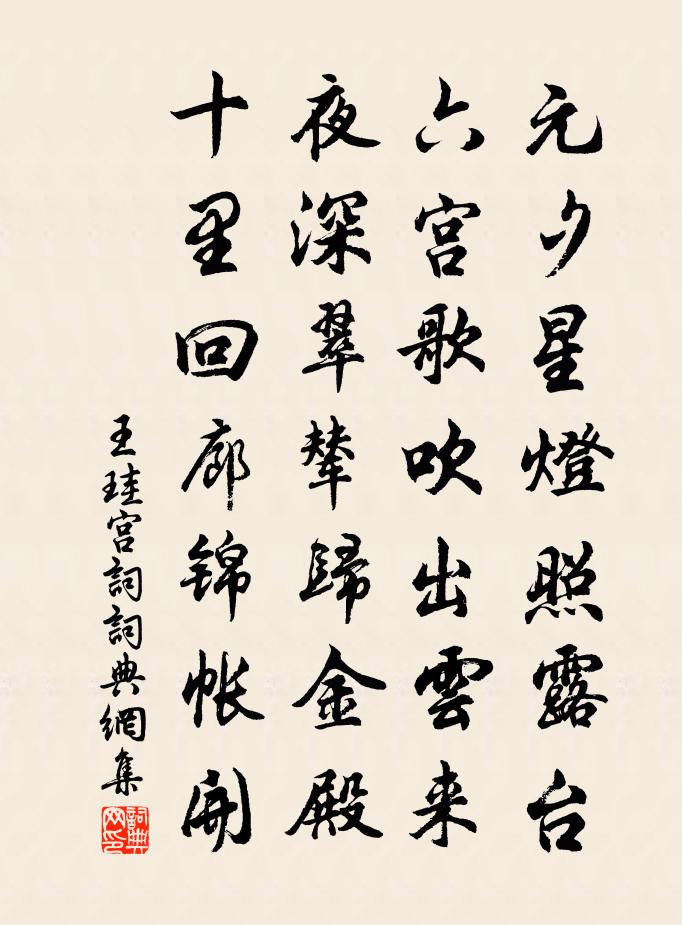 元夕星燈照露台
六宫歌吹出雲来
夜深翠輦歸金殿
十里回廊锦帐開
王珪宫詞詞典網集
詞典网印